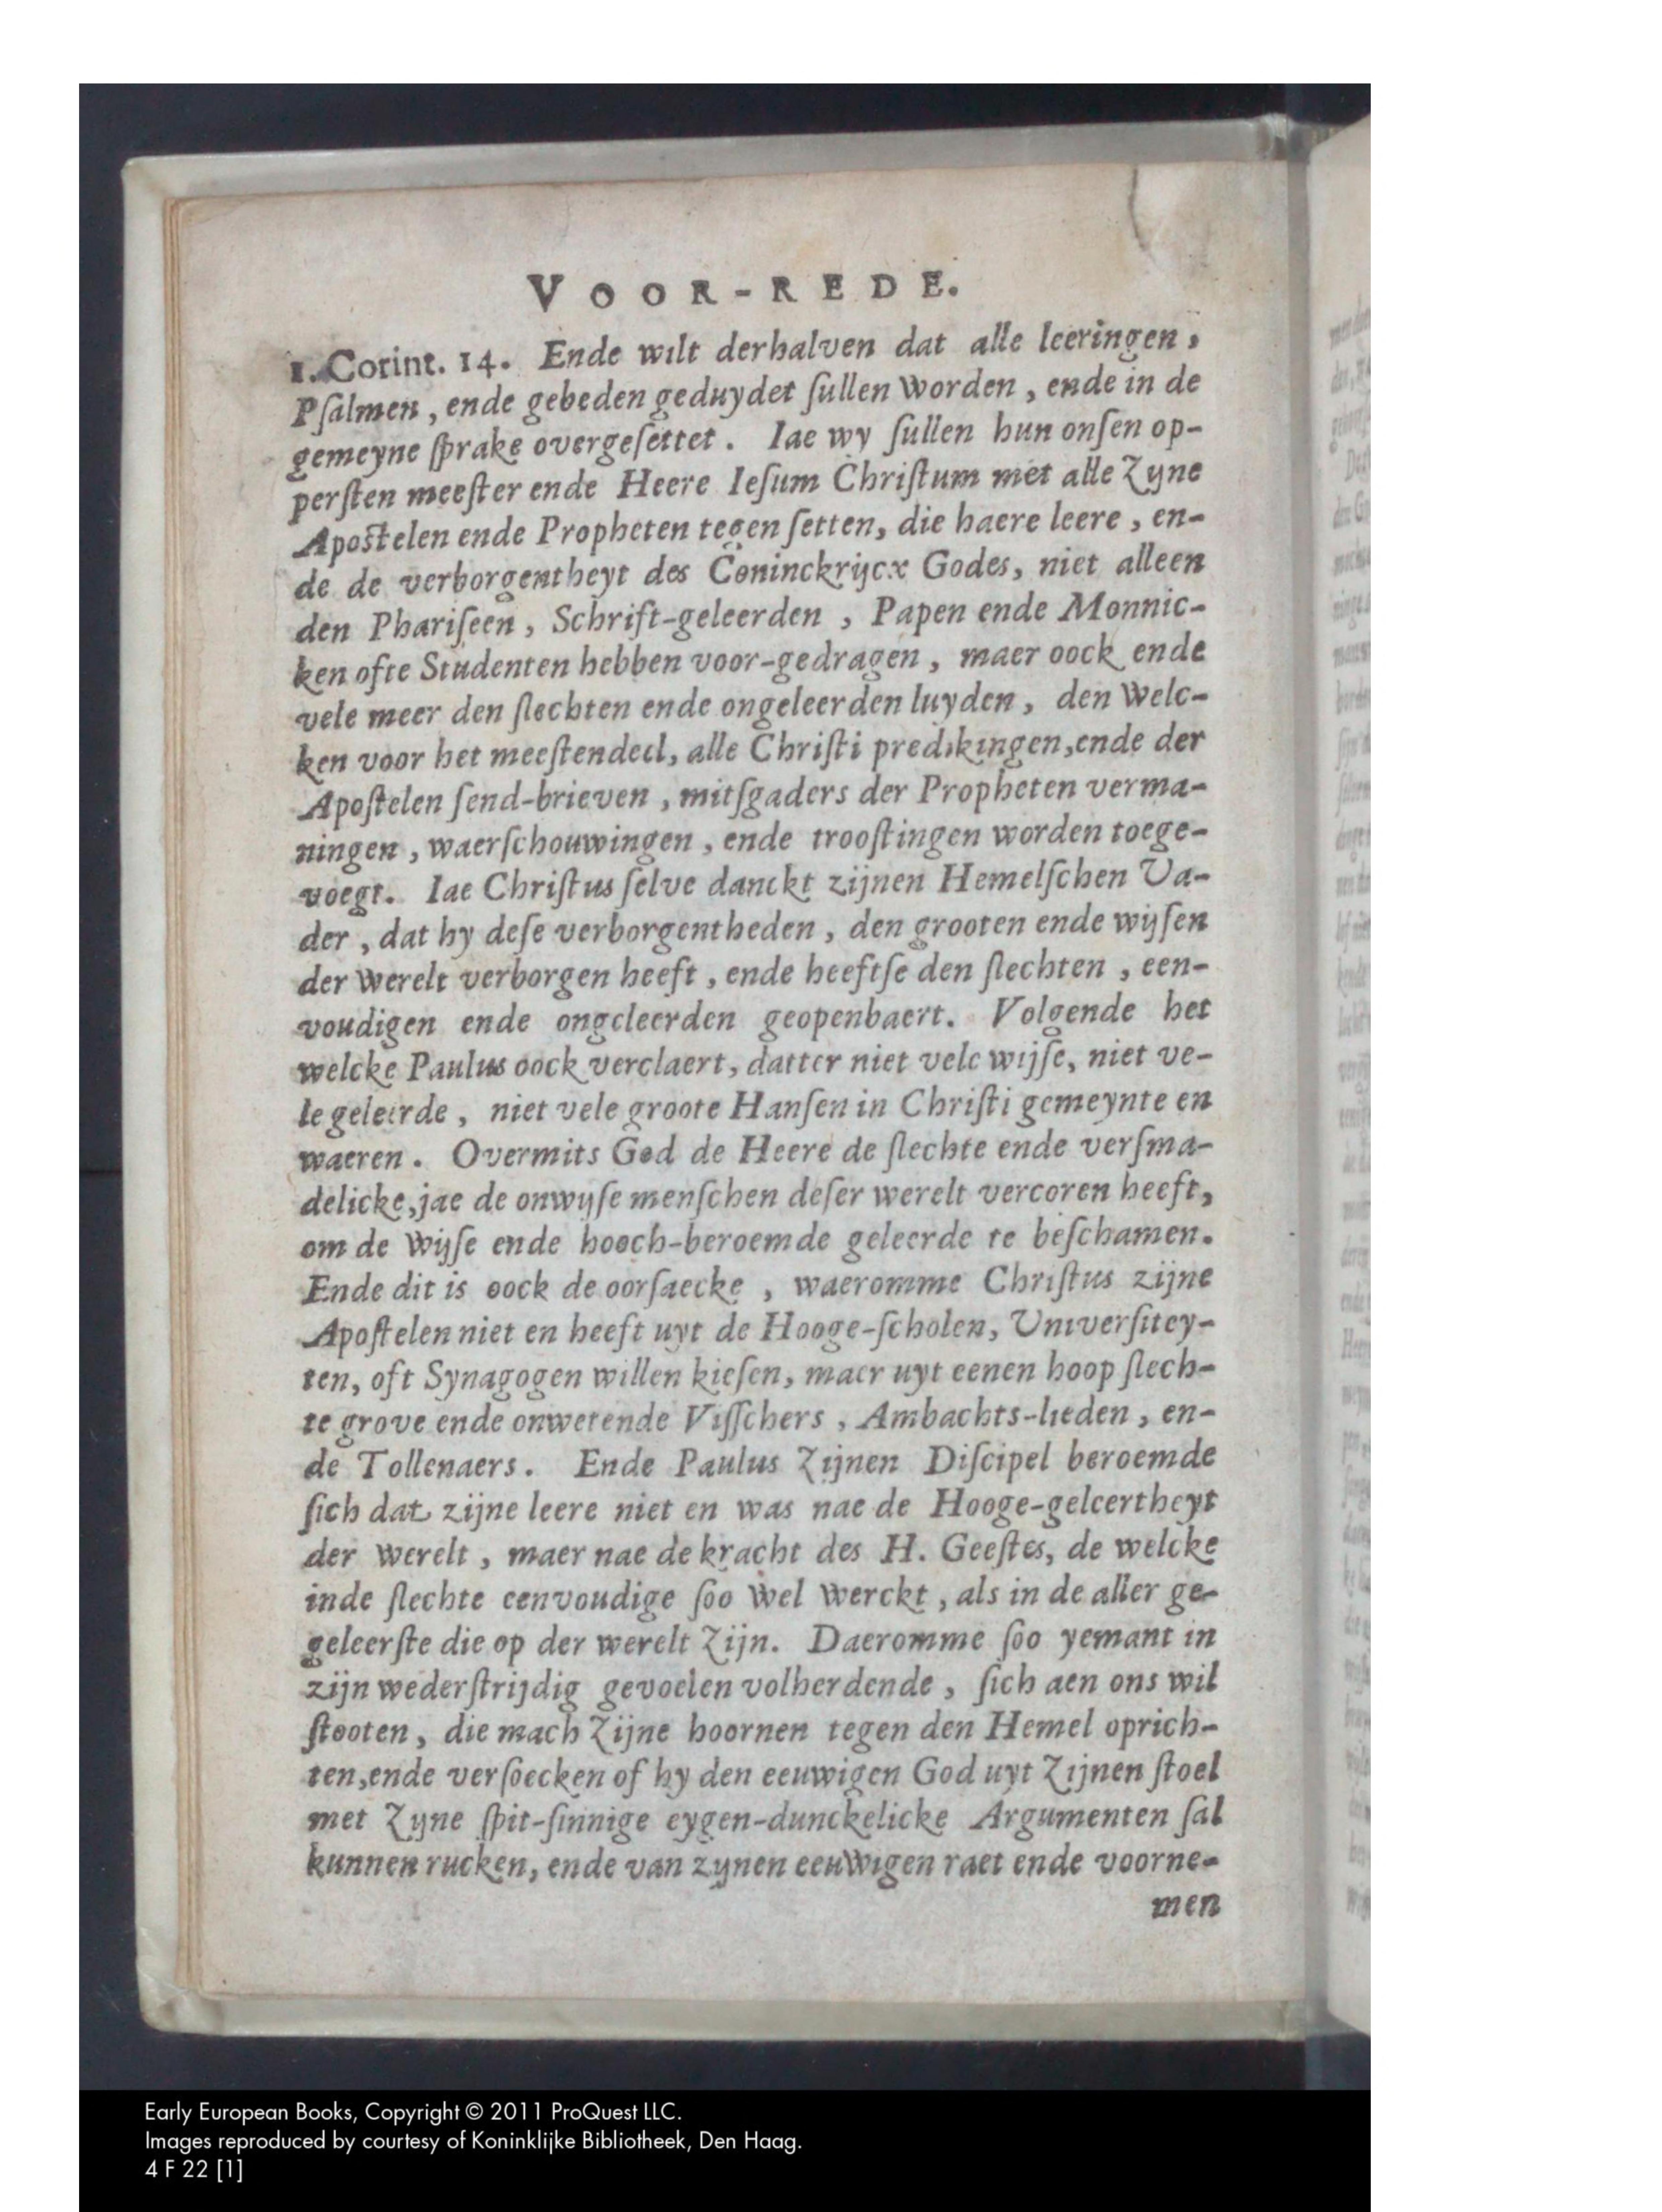 VOOR-REDE.
1. Corint. 14. Ende wilt derhalven dat alle leeringen,
Pſalmen, ende gebeden geduydet ſullen worden, ende in de
gemeyne ſprake overgeſettet. Iae wy ſullen hun onſen op-
perſten meeſter ende Heere Ieſum Chriſtum met alle Zyne
Apoſtelen ende Propheten tegen ſetten, die haere leere, en-
de de verborgentheyt des Coninckrijcx Godes, niet alleen
den Phariſeen, Schrift-geleerden, Papen ende Monnic-
ken ofte Studenten hebben voor-gedragen, maer oock ende
vele meer den ſlechten ende ongeleerden luyden, den welc-
ken voor het meeſtendeel, alle Chriſti predikingen, ende der
Apoſtelen ſend-brieven, mitſgaders der Propheten verma-
ningen, waerſchouwingen, ende trooſtingen worden toege-
voegt. Iae Chriſtus ſelve danckt zijnen Hemelſchen Va-
der, dat hy deſe verborgentheden, den grooten ende wijſen
der werelt verborgen heeft, ende heeftſe den ſlechten, een-
voudigen ende ongeleerden geopenbaert. Volgende het
welcke Paulus oock verclaert, datter niet vele wijſe, niet ve-
le geleerde, niet vele groote Hanſen in Chriſti gemeynte en
waeren. Overmits God de Heere de ſlechte ende verſma-
delicke, jae de onwyſe menſchen deſer werelt vercoren heeft,
om de wijſe ende hooch-beroemde geleerde te beſchamen.
Ende dit is oock de oorſaecke, waeromme Chriſtus zijne
Apoſtelen niet en heeft uyt de Hooge-ſcholen, Univerſitey-
ten, oft Synagogen willen kieſen, maer uyt eenen hoop ſlech-
te grove ende onwetende Viſſchers, Ambachts-lieden, en-
de Tollenaers. Ende Paulus Zijnen Diſcipel beroemde
ſich dat zijne leere niet en was nae de Hooge-geleertheyt
der werelt, maer nae de kracht des H. Geeſtes, de welcke
inde ſlechte eenvoudige ſoo wel werckt, als in de aller ge-
geleerſte die op der werelt Zijn. Daeromme ſoo yemant in
zijn wederſtrijdig gevoelen volherdende, ſich aen ons wil
ſtooten, die mach Zijne hoornen tegen den Hemel oprich-
ten, ende verſoecken of hy den eeuwigen God uyt Zijnen ſtoel
met Zyne ſpit-ſinnige eygen-dunckelicke Argumenten ſal
kunnen rucken, ende van zynen eeuwigen raet ende voorne-
men
Early European Books, Copyright © 2011 ProQuest LLC.
Images reproduced by courtesy of Koninklijke Bibliotheek, Den Haag.
4 F 22 [1]